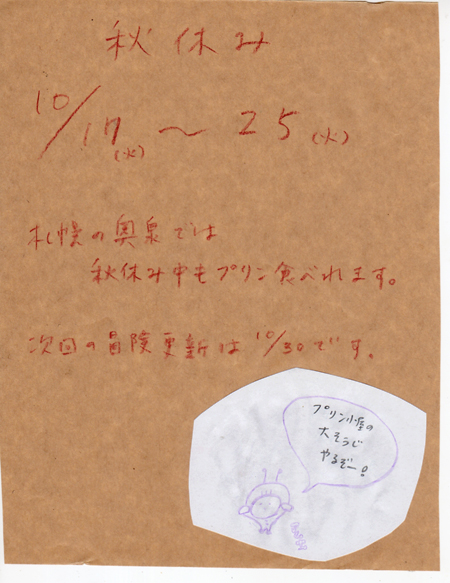 秋休み
10/17(火)〜25(火)
札幌の奥泉では
秋休み中もプリン食べれます。
次回の冒険更新は10/30です。
プリン小屋の
大そうじ
やるぞー!